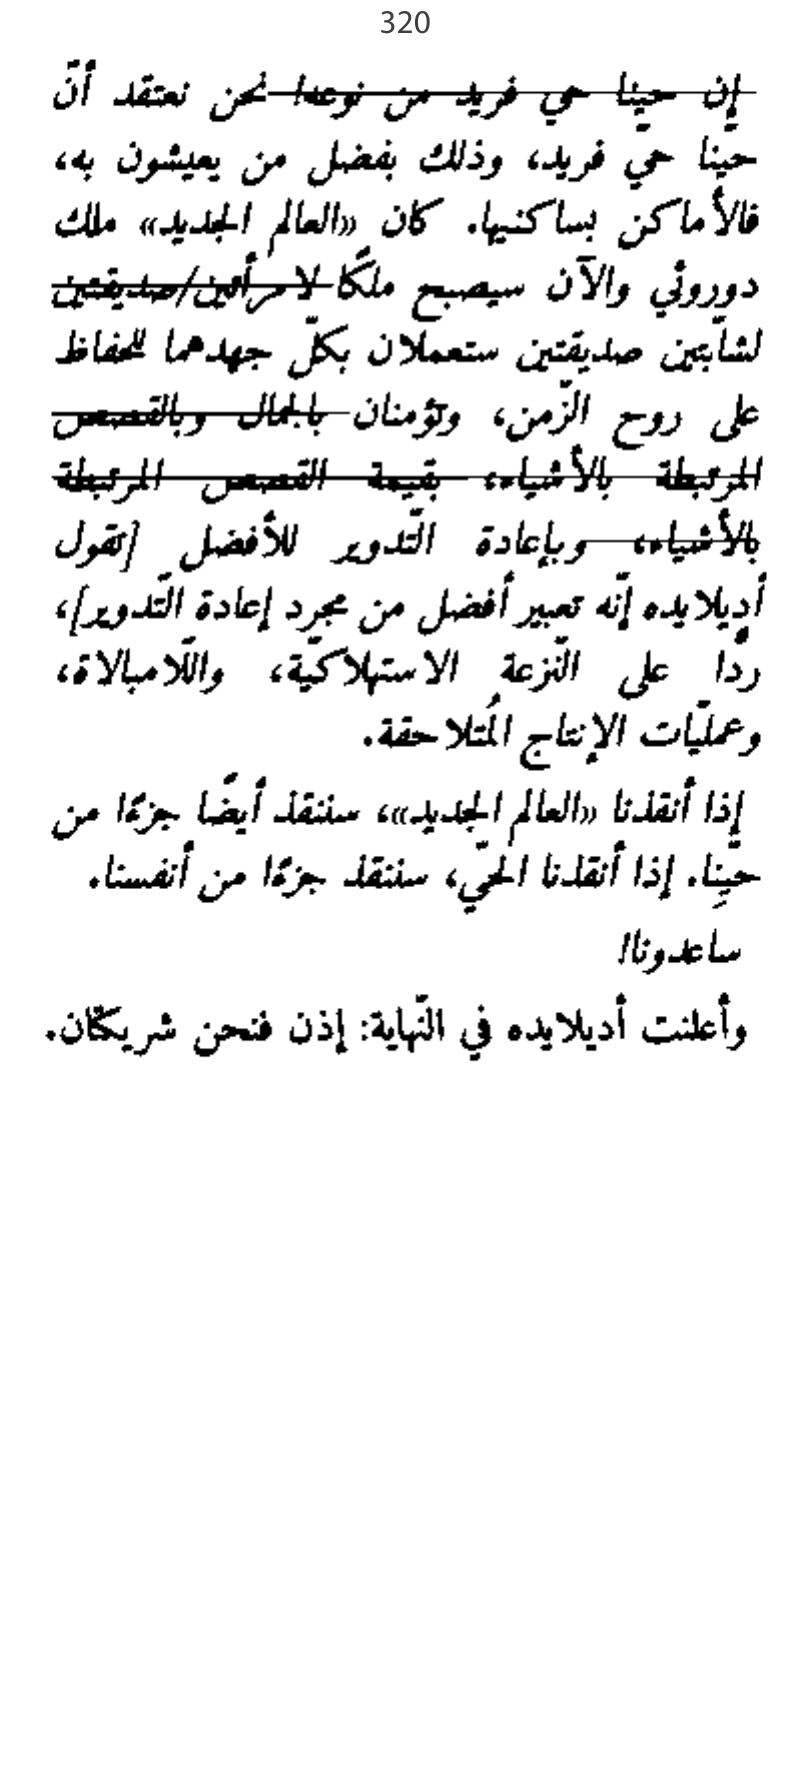 320
إن حيّنا حي فريد من نوعه! نحن نعتقد أنّ
حيّنا حيّ فريد، وذلك بفضل من يعيشون به،
فالأماكن بساكنيها. كان «العالم الجديد» ملك
دوروثي والآن سيصبح ملكًا لامرأتين/صديقتين
لشابّتين صديقتين ستعملان بكلّ جهدهما للحفاظ
على روح الزّمن، وتؤمنان بالجمال وبالقصص
المرتبطة بالأشياء، بقيمة القصص المرتبطة
بالأشياء، وبإعادة التّدوير للأفضل [تقول
أديلايده إنّه تعبير أفضل من مجرد إعادة التّدوير]،
ردًّا على النّزعةِ الاستهلاكيّة، واللّامبالاة،
وعمليّات الإنتاج المُتلاحقة.
إذا أنقذنا «العالم الجديد»، سننقذ أيضًا جزءًا من
حيّنِا. إذا أنقذنا الحيّ، سننقذ جزءًا من أنفسنا.
ساعدونا!
وأعلنت أديلايده في النّهاية: إذن فنحن شريكتان.